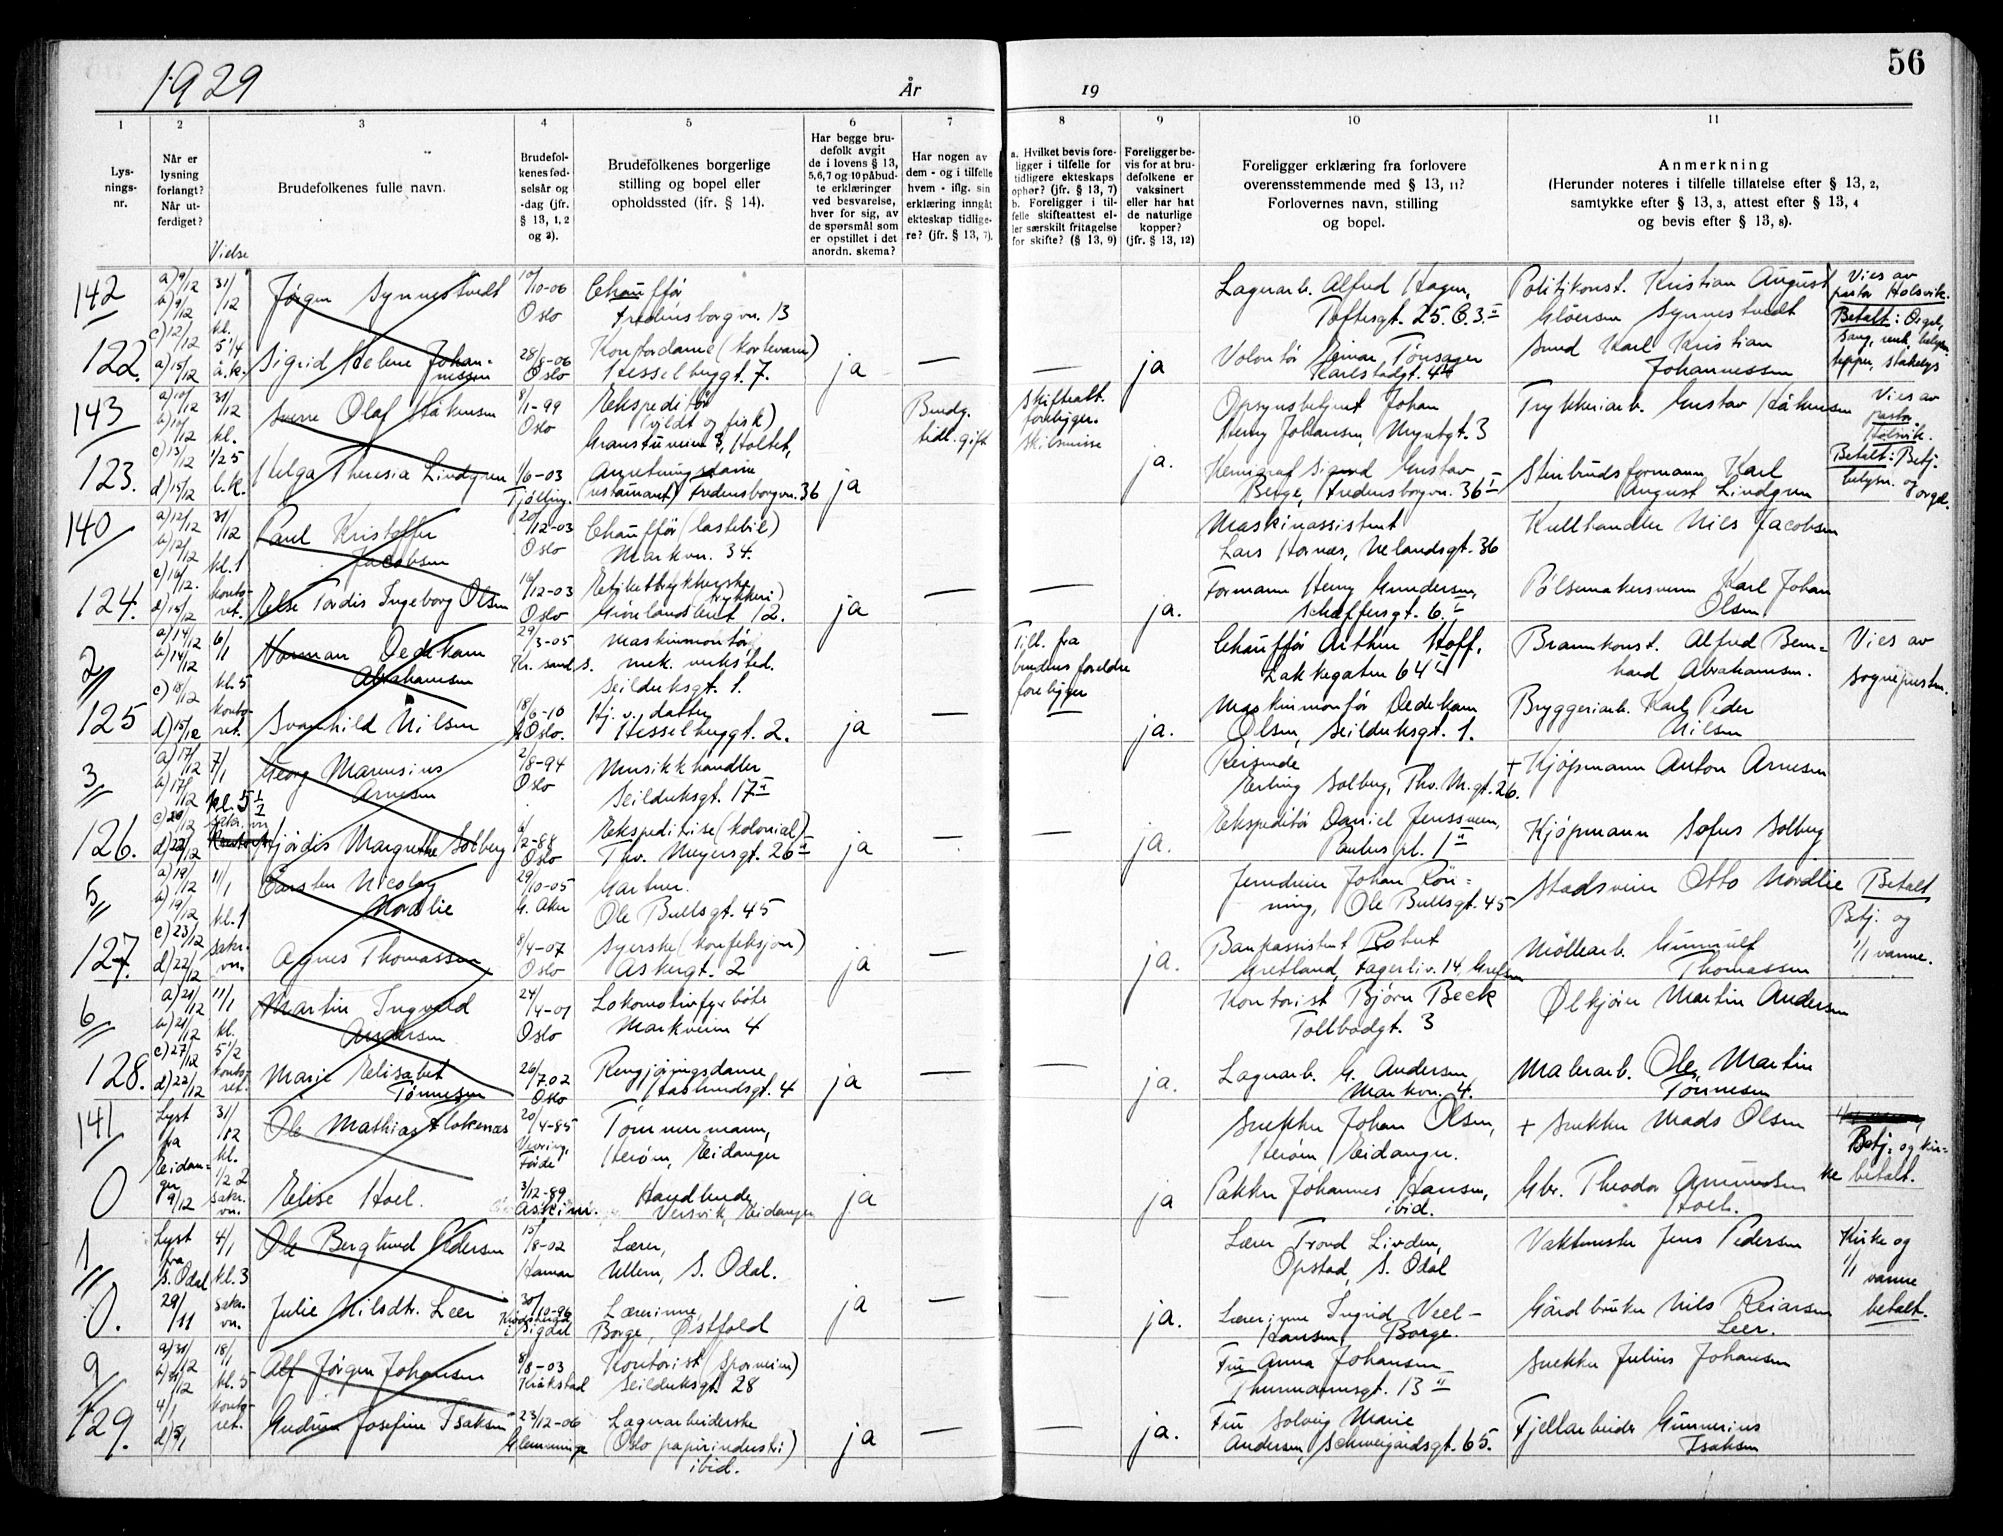 1929
År
19
56
1
2
3
4
5
6
7
8
9
10
11
Lys-
nings-
nr.
Når er
lysning
forlangt?
Når ut-
ferdiget?
Vielse
Brudefolkenes fulle navn.
Brudefol-
kenes fød-
selsår og
-dag (jfr.
§ 13, 1, 2
og 3).
Brudefolkenes borgerlige
stilling og bopel eller
opholdssted (jfr. § 14).
Har begge bru-
defolk avgit
de i lovens § 13,
5, 6, 7 og 10 påbud-
te erklæringer
ved besvarelse,
hver for sig, av
de spørsmål som
er opstillet i det
anordn. skema?
Har nogen av
dem - og i tilfelle
hvem - iflg. sin
erklæring inngåt
ekteskap tidlige-
re? (jfr. § 13, 7).
a. Hvilket bevis fore-
ligger i tilfelle for
tidligere ekteskaps
ophør? (jfr. § 13, 7)
b. Foreligger i til-
felle skifteattest el-
ler særskilt fritagelse
for skifte? (§ 13, 9)
Foreligger be-
vis for at bru-
defolkene er
vaksinert
eller har hat
de naturlige
kopper?
(jfr. § 13, 12)
Foreligger erklæring fra forlovere
overensstemmende med § 13, 11?
Forlovernes navn, stilling
og bopel.
Anmerkning
(Herunder noteres i tilfelle tillatelse efter § 13, 2,
samtykke efter § 13, 3, attest efter § 13, 4
og bevis efter § 13, 8).
142
122.
a) 9/12
b) 9/12
c) 12/12
d) 15/12
31/12
kl.
5 1/4
Jørgen Synnestvedt
10/10-06
Oslo
Chauffør
Fredensborgvn. 13
Sigrid Helene Johan-
nessen
28/8-06
Oslo
Kontordame
Hesselberggt. 7.
ja
—
—
ja
Lagerarb. Alfred Hagen,
Toftesgt. 25. C. 3. II
Volontør Einar Tønsager
Karlstadgt.
Politikonst. Kristian August
Gløersen Synnestvedt
Smed Karl Kristian
Johannessen
Vies av
pastor Holsvik.
Betalt: Orgel,
143
123.
a) 10/12
b) 10/12
c) 13/12
d) 15/12
31/12
kl.
1/2 5
Sverre Olaf Håkensen
8/1-99
Oslo
Ekspeditør
(vildt og fisk)
Granstuveien 3, Holtet,
Helga Theresia Lindgren
1/6-03
Tjølling.
Anretningsdame
(restaurant) Fredensborgvn. 36
ja
Brudg.
tidl. gift
Skifteatt.
foreligger.
Skilsmisse
ja.
Opsynsbetjent Johan
Henry Johansen, Myntgt. 3
Sigurd Gustav
Berge, Fredensborgvn. 36 I
Trykkeriarb. Gustav Håkensen
Stenbrudsformann Karl
August Lindgren
Vies av
pastor
Holsvik.
Betalt: Betj.
belysn. og
orgel.
140
124.
a) 12/12
b) 12/12
c) 16/12.
d) 15/12
31/12
kl. 1
konto-
ret.
Paul Kristoffer
Jacobsen
20/12-03
Oslo
Chauffør (lastebil)
Markvn. 34.
Else Tordis Ingeborg Olsen
16/12-03
Oslo
Etikettrykkerske
(trykkeri)
Grønlandsleret 12.
ja
—
—
ja.
Maskinassistent
Lars Hornæs, Uelandsgt. 36
Formann Henry Gundersen,
Schæffersgt. 6. I
Kullhandler Nils Jacobsen
Pølsemakersvenn Karl Johan
Olsen
2
125
a) 14/12
b) 14/12
c) 18/12
d) 15/12
6/1
kl. 5
konto-
ret.
Norman Dedekam
Abrahamsen
29/3-05
Kr. sand S.
Maskinmontør,
mek. verksted.
Seilduksgt. 1.
Svanhild Nilsen
18/6-10
Oslo.
Hj. v. datter
Hesselberggt. 2.
ja
—
Till. fra
brudens foreldre
foreligger
—
ja.
Chauffør Arthur Hoff,
Lakkegaten 64 I
Maskinmontør Dedekam
Olsen, Seilduksgt. 1.
Brannkonst. Alfred Bern-
hard Abrahamsen.
Bryggeriarb. Karl Peder
Nilsen
Vies av
sogneprestn.
3
126.
a) 17/12
b) 17/12
c) 20/12
d) 22/12
7/1
kl. 5 1/2
Georg Marensius
Arnesen
2/8-94
Oslo
Musikkhandler
Seilduksgt. 17 II
Hjørdis Margrethe Solberg
6/2-88
Oslo
Ekspeditrise (kolonial)
Thv. Meyersgt. 26 II
ja
—
—
ja.
Reisende
Erling Solberg, Thv. M. gt. 26.
Ekspeditør Daniel Jenssveen,
Paulus pl. 1 II
+ Kjøpmann Anton Arnesen
Kjøpmann Sofus Solberg
5
127.
a) 19/12
b) 19/12
c) 23/12
d) 22/12
11/1
kl. 1
sakr.
vn.
Carsten Nicolay
Nordlie
29/10-05
V. Aker
Gartner.
Ole Bullsgt. 45
Agnes Thomassen
8/4-07
Oslo
Syerske (konfeksjon)
Askergt. 2
ja
—
ja.
Jerndreier Johan Røn-
ning, Ole Bullsgt. 45
Bankassistent Robert
Gretland, Fagerliv. 14, Grefsen
Stadsveier Otto Nordlie
Møllearb. Gunnulf
Thomassen
Betalt
Betj. og
1/1 varme.
6
128.
a) 21/12
b) 21/12
c) 27/12
d) 22/12
11/1
kl.
5 1/2
konto-
ret.
Martin Ingvald
Andersen
24/4-01
Oslo
Lokomotivfyrbøter
Markveien 4
Marie Elisabet
Tønnesen
26/7.02
Oslo
Rengjøringsdame
Haslundsgt. 4
ja
—
—
ja.
Kontorist Bjørn Beck
Tollbodgt. 3
Lagerarb. G. Andersen,
Markvn. 4.
Ølkjører Martin Andersen
Malerarb. Ole Martin
Tønnesen
141
0
Lyst
fra
Eidan-
ger
9/12
31/12
kl.
1/2 2
sakr.
vn.
Ole Mathias Flokenes
20/4-85
Vevring,
Førde
Tømmermann,
Herøen, Eidanger
Elise Hoel.
3/12-89
Askim.
Handlende
Versvik, Eidanger
ja
—
ja
Snekker Johan Olsen,
Herøen Eidanger.
Pakker Johannes Hansen,
ibid.
+ Snekker Mads Olsen
Gbr. Theodor Amundsen
Hoel.
Betj. og kir-
ke betalt.
1
0.
Lyst
fra
S. Odal
29/11
4/1
kl. 3
sakr.
vn.
Ole Berglund Pedersen
15/8-02
Hamar
Lærer,
Ullern, S. Odal.
Julie Nilsdtr. Leer
30/10-96
i Sigdal
Lærerinne,
Borge, Østfold
ja
—
—
ja.
Lærer Trond Linden,
Opstad, S. Odal
Lærerinne Ingrid Veel-
Hansen, Borge.
Vaktmester Jens Pedersen
Gårdbruker Nils Reiarsen
Leer.
Kirke og
1/1 varme
betalt.
9
129.
a) 30/12
b) 31/12
4/1
d) 5/1
18/1
kl. 5
konto-
ret.
Alf Jørgen Johansen
8/8-03
Kråkstad
Kontorist (Sporveien)
Seilduksgt. 28
Gudrun Josefine Isaksen
23/12-06
Glemminge
Lagerarbeiderske
(Oslo papirindustri)
ibid.
ja
—
—
ja.
Fru Anna Johansen
Thurmannsgt. 13 II
Fru Solveig Marie
Andersen, Schweigårdsgt. 65.
Snekker Julius Johansen
Fjellarbeider Gunnerius
Isaksen